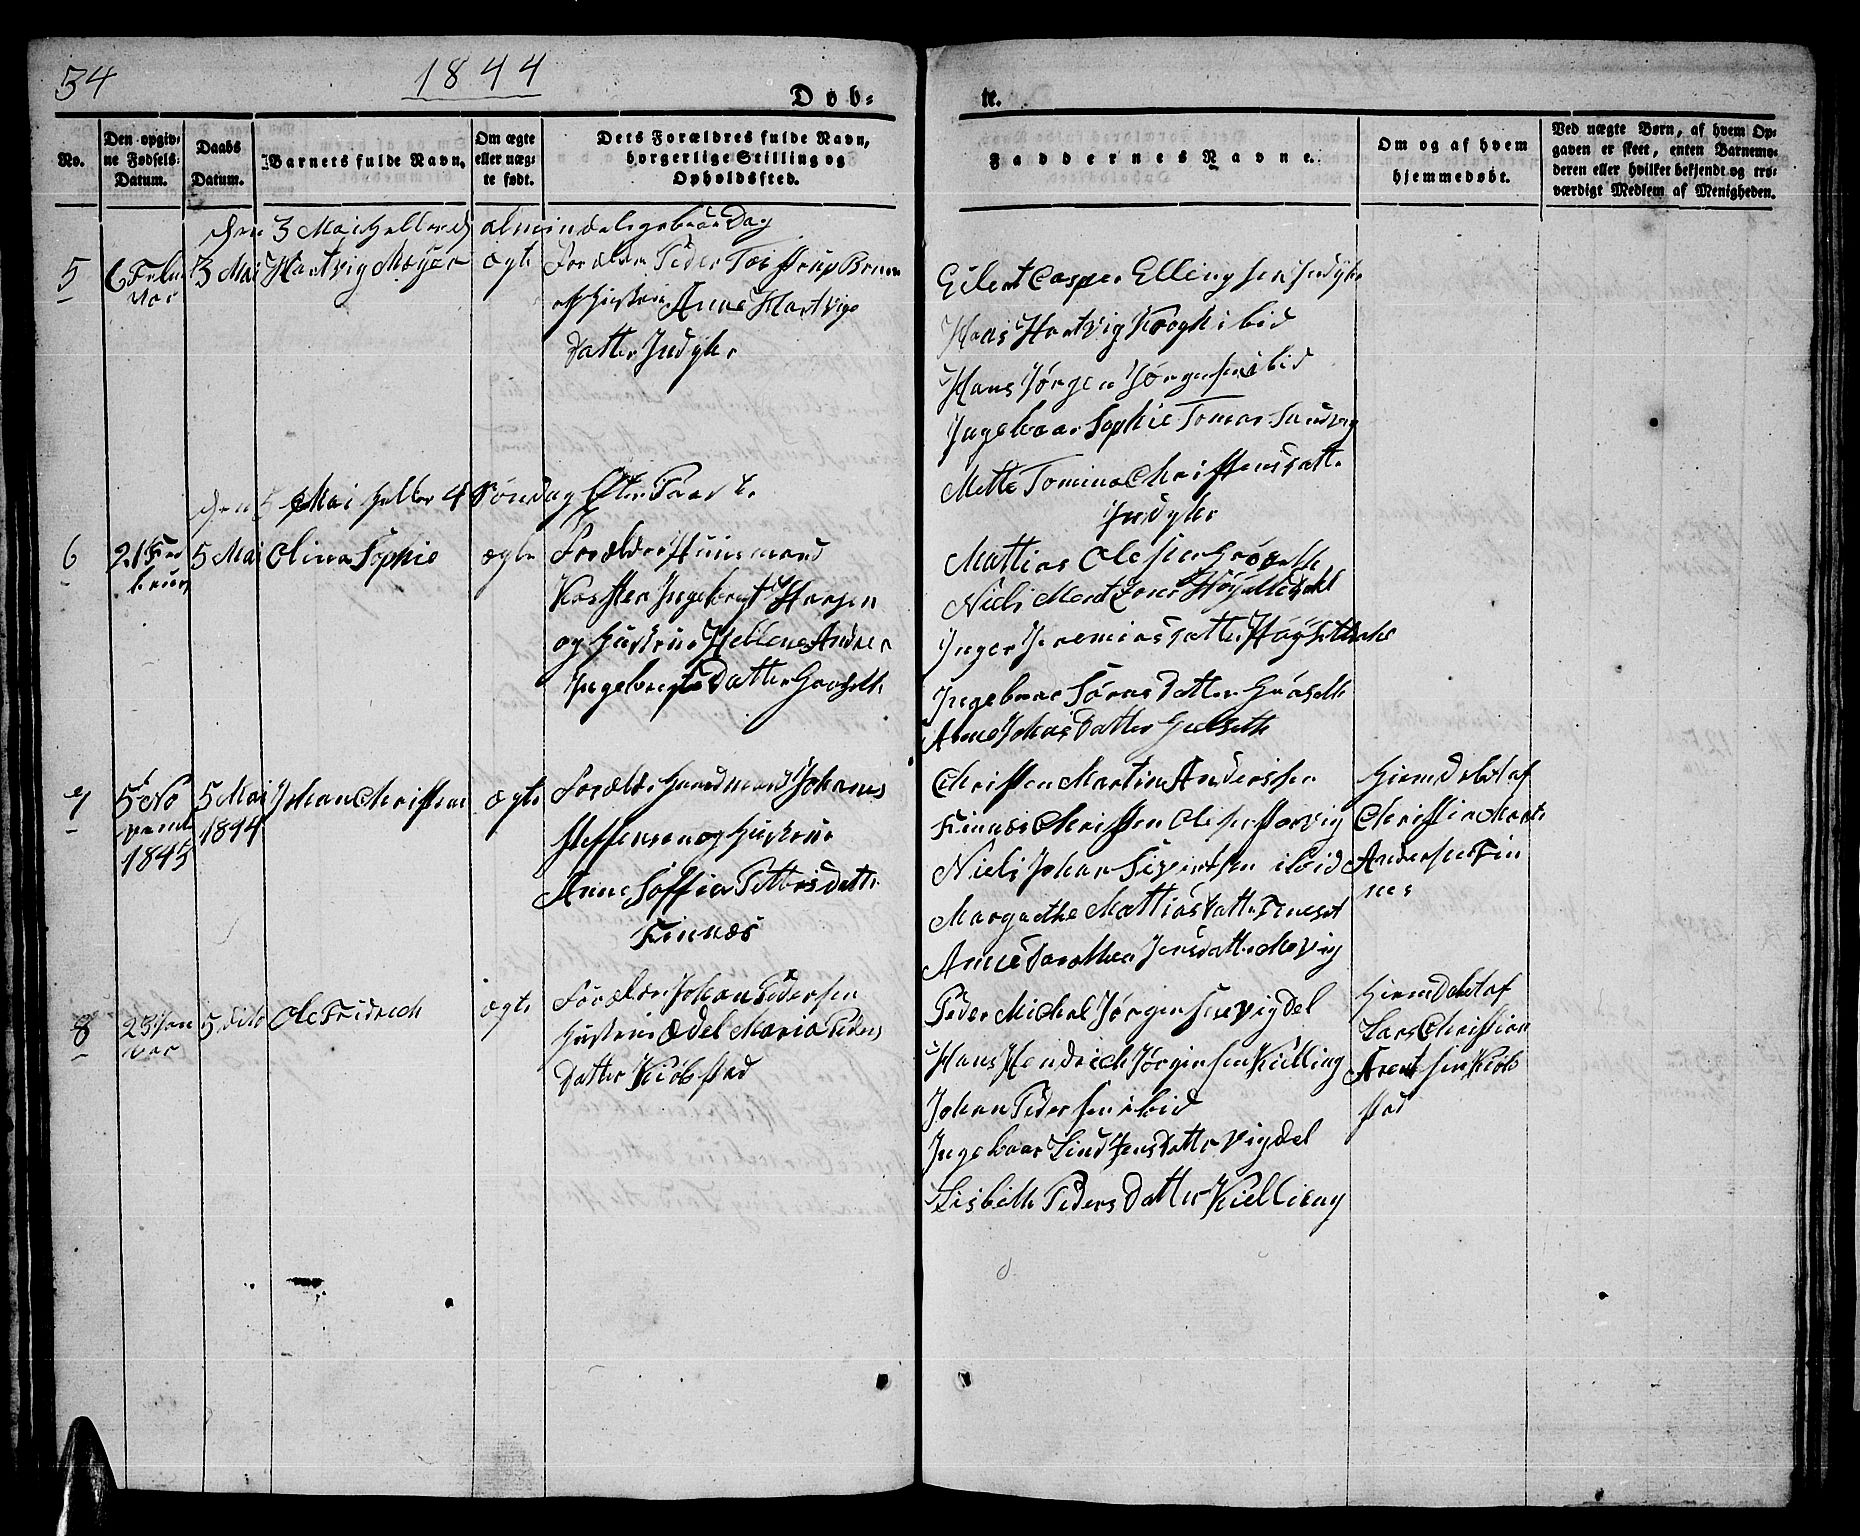 34
1844
Døb-
te.
No.
Den opgiv-
ne Fødsels-
Datum.
Daabs
Datum.
Barnets fulde Navn.
Om ægte
eller uæg-
te født.
Dets Forældres fulde Navn,
borgerlige Stilling og
Opholdssted.
Faddernes Navne.
Om og af hvem
hjemmedøbt.
Ved uægte Børn, af hvem Op-
gaven er skeet, enten Barnemo-
deren eller hvilket bekjendt og tro-
værdigt Medlem af Menigheden.
den 3 Mai
Dag
5
6 Febu
var
3 Mai
Hartvig Meyer
ægte
Forælder Peder Tostrup
Hustrue Anne Hartvigs
datter Indyhr
Eilert Casper Ellingsen Indyhr
Hans Hartvig Krogh ibid
Hans Jørgen Jørgensen ibid
Ingeboor Sophie Tomas
Mette Tomina Christensdatte
Indyhr
den 5 Mai 4 Søndag Efter Paaske
6
21 Feb
5 Mai
Olina Sophie
ægte
Forælder Huusmand
Karsten Ingebregt Hansen
og Hustrue Hellene Andrea
Ingebregts Datter
Mattias Olesen
Niels Mentzoni
Inger Jeremiasdatter
Ingeboor Sørens Datter
Anne Johns Datter
7
5 No
vemb
1843
5 Mai
1844
Johan Christian
ægte
Forælder Gaardmand Johannes
Steffensen og Hustrue
Anne Soffia Pettersdatte
Finnæs
Christen Martin Anderssen
Finnæs Christen Olesen Storvig
Niels Johan Sivertsen ibid
Margrethe Mattiasdatte
Anne Dorothea Jensdatter
Hiemdøbt af
Christian Mart
Andersen Fin
nes
8
23 Jan
var
5 dito
Ole Fridrech
ægte
Forælder Johan Pedersen
Hustrue Ædel Maria Peders
datter Kiøbstad
Peder Michal Jørgensen Vigdel
Hans Hendrich Jørgensen Kielling
Johan Pedersen ibid
Ingeboor Lind Jensdatter Vigdel
Lisbeth Peders Datter Kielling
Hiemdøbt af
Lars Christian
Arentsen Kiøb
stad